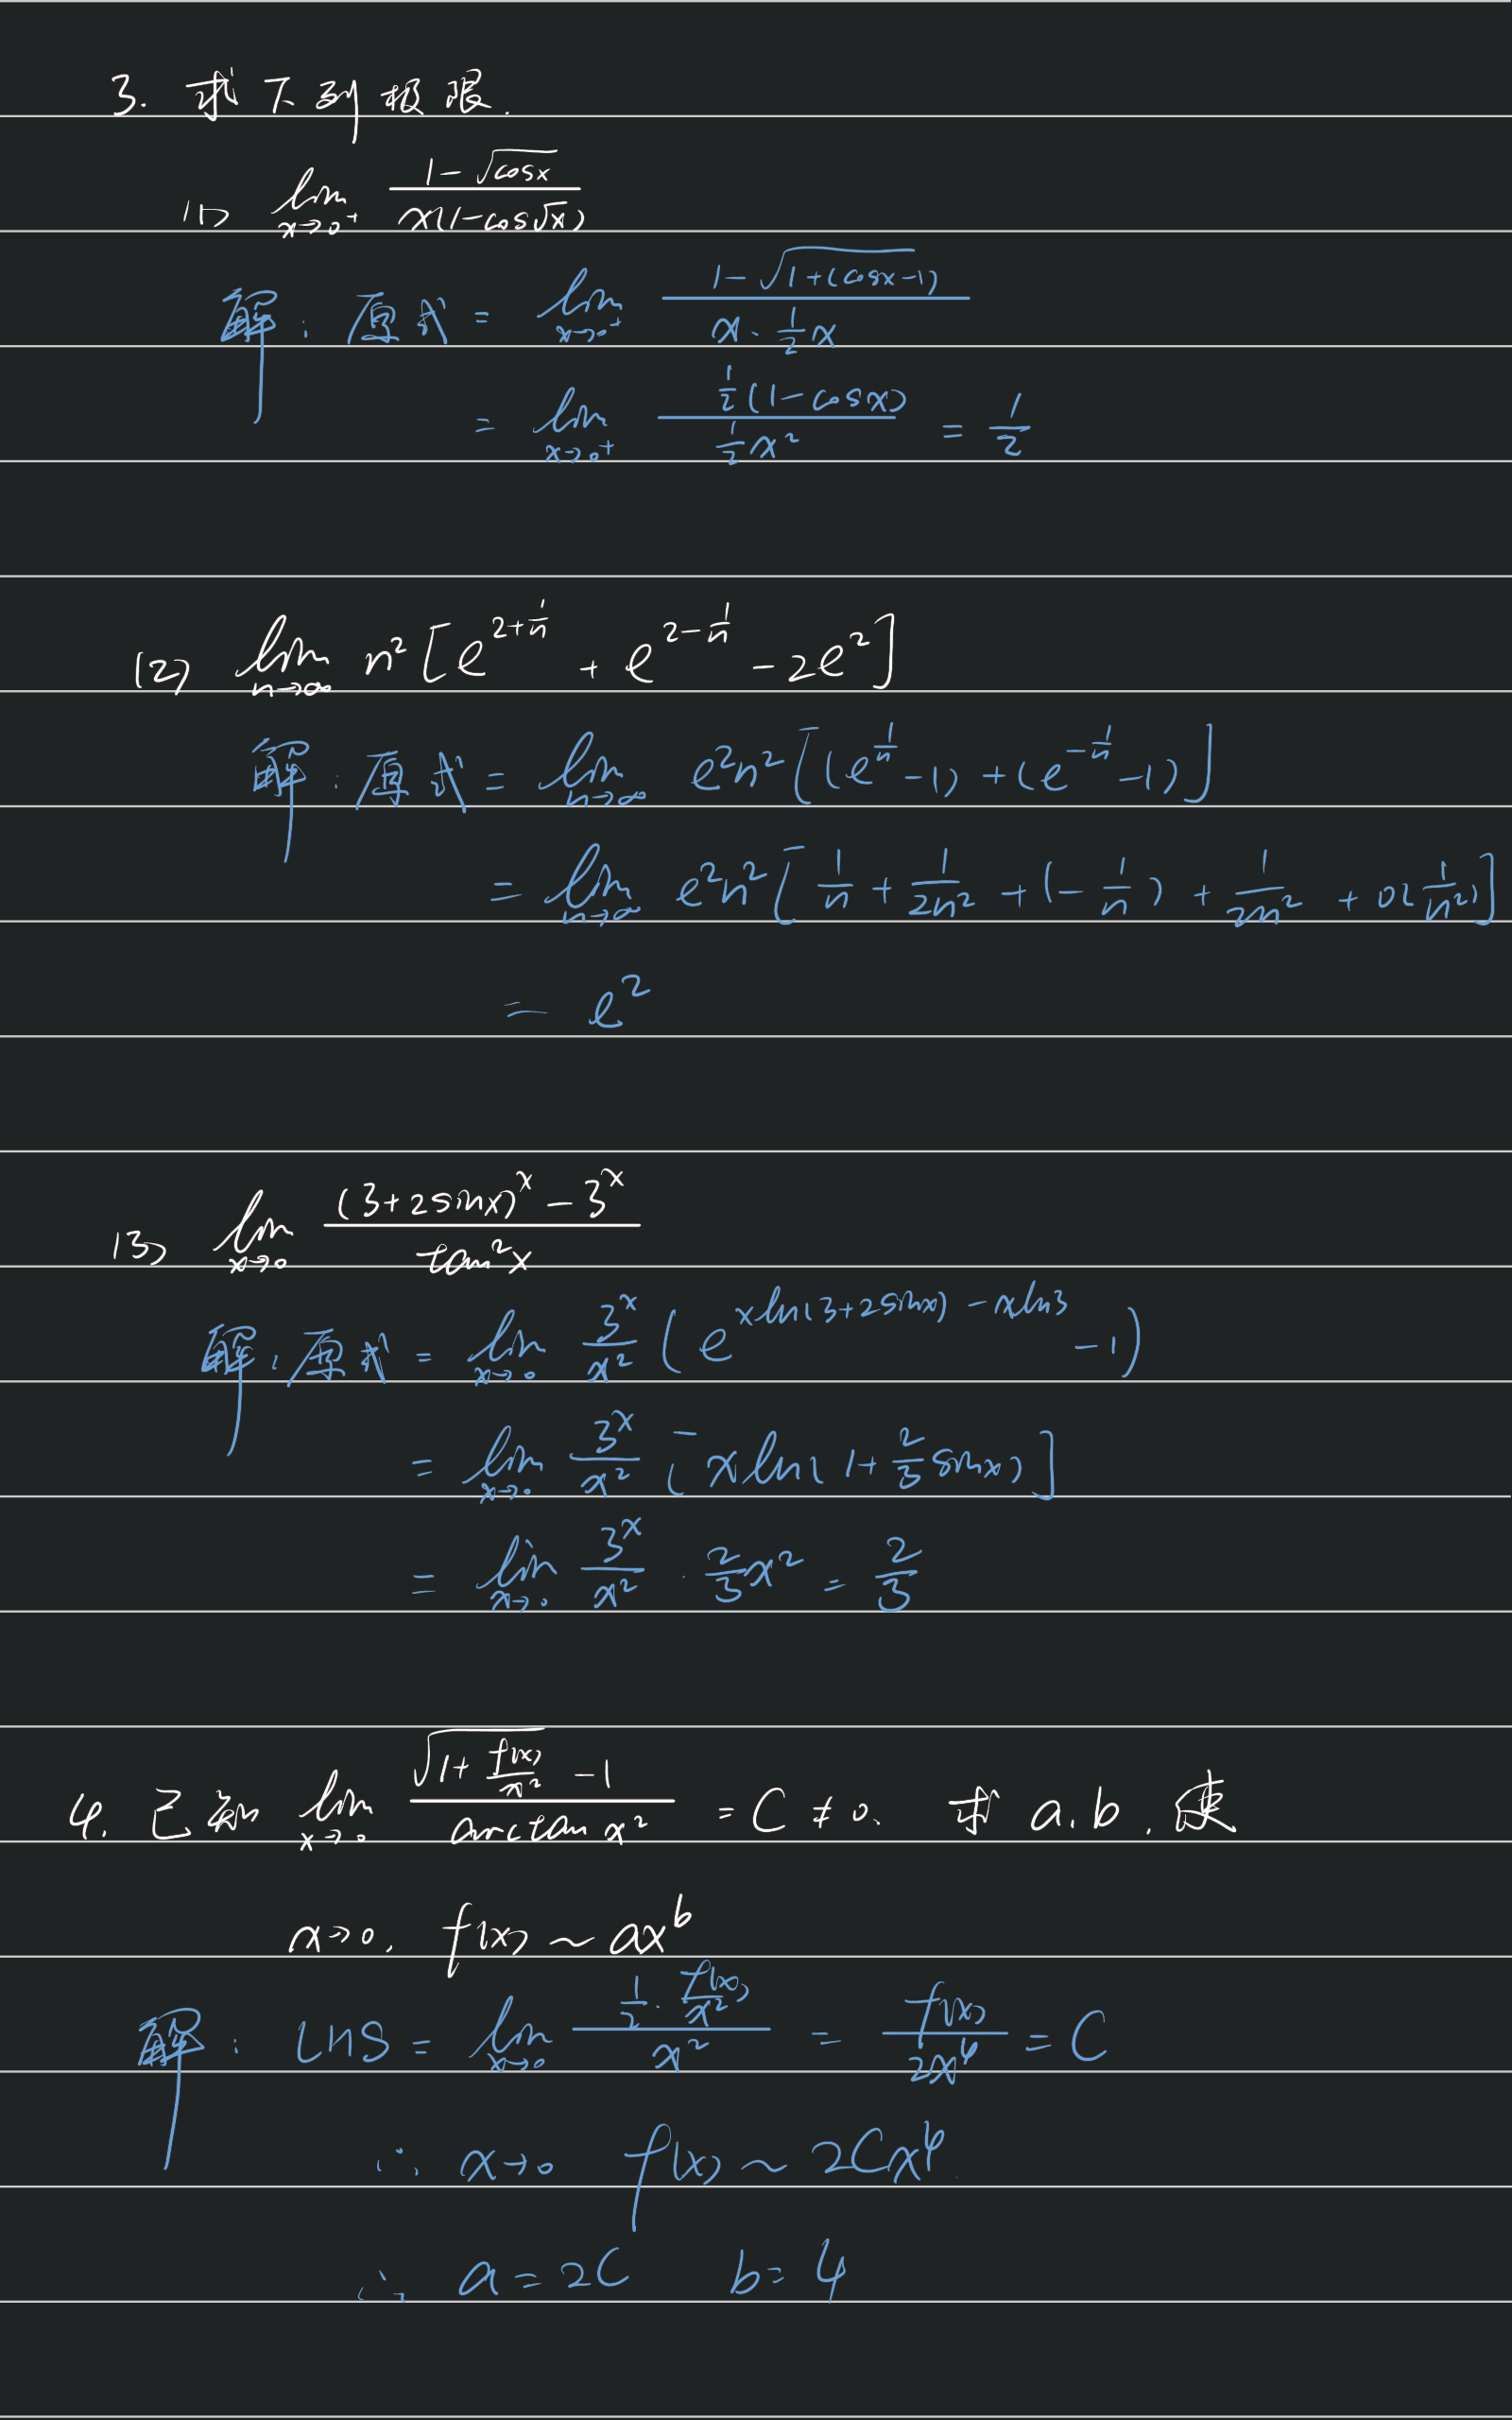 3. 求下列极限.
(1) lim_{x→0⁺} (1-√cosx)/(x(1-cos√x))
解: 原式 = lim_{x→0⁺} (1-√(1+(cosx-1)))/(x·½x)
= lim_{x→0⁺} (½(1-cosx))/(½x²) = 1/2
(2) lim_{n→∞} n²[e^{2+1/n} + e^{2-1/n} - 2e²]
解: 原式 = lim_{n→∞} e²n²[(e^{1/n}-1)+(e^{-1/n}-1)]
= lim_{n→∞} e²n²[1/n + 1/(2n²) + (-1/n) + 1/(2n²) + o(1/n²)]
= e²
(3) lim_{x→0} ((3+2sinx)^x - 3^x)/(tan²x)
解: 原式 = lim_{x→0} (3^x/x²)(e^{xln(3+2sinx)-xln3} - 1)
= lim_{x→0} (3^x/x²)[xln(1+⅔sinx)]
= lim_{x→0} (3^x/x²)·⅔x² = 2/3
4. 已知 lim_{x→0} (√(1+f(x)/x²) - 1)/(arctanx²) = C ≠ 0. 求 a.b. 使
x→0, f(x) ~ ax^b
解: LHS = lim_{x→0} (½·f(x)/x²)/(x²) = f(x)/(2x⁴) = C
∴ x→0 f(x) ~ 2Cx⁴.
∴ a=2C b=4